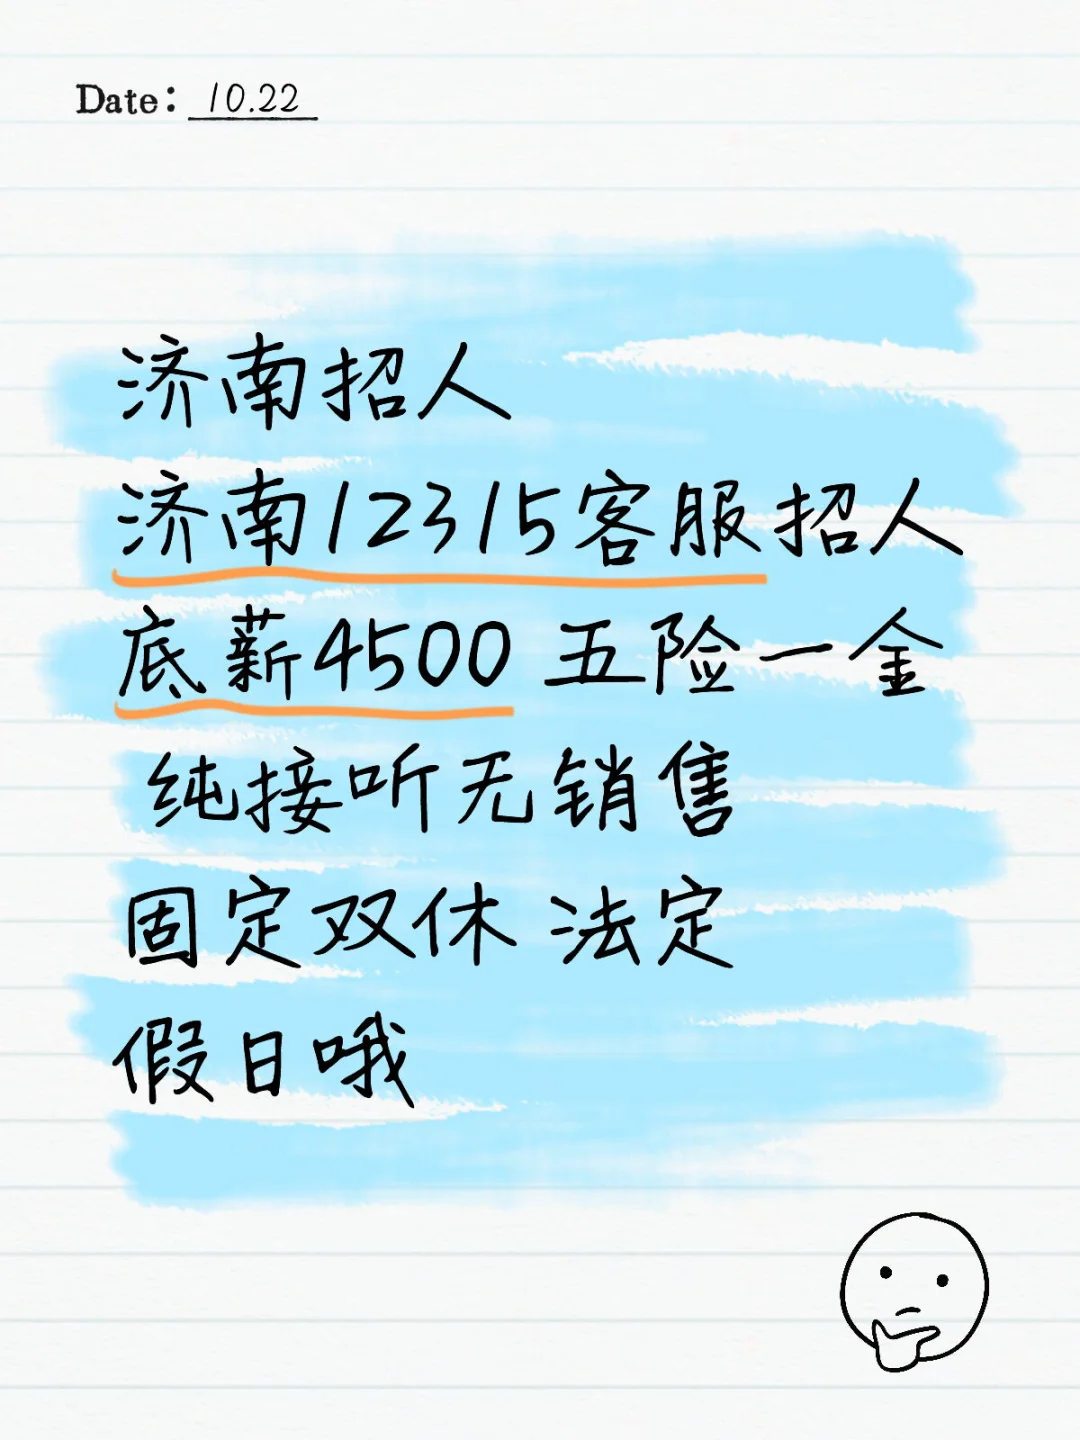 Date: 10.22
济南招人
济南12315客服招人
底薪4500 五险一金
纯接听无销售
固定双休 法定
假日哦